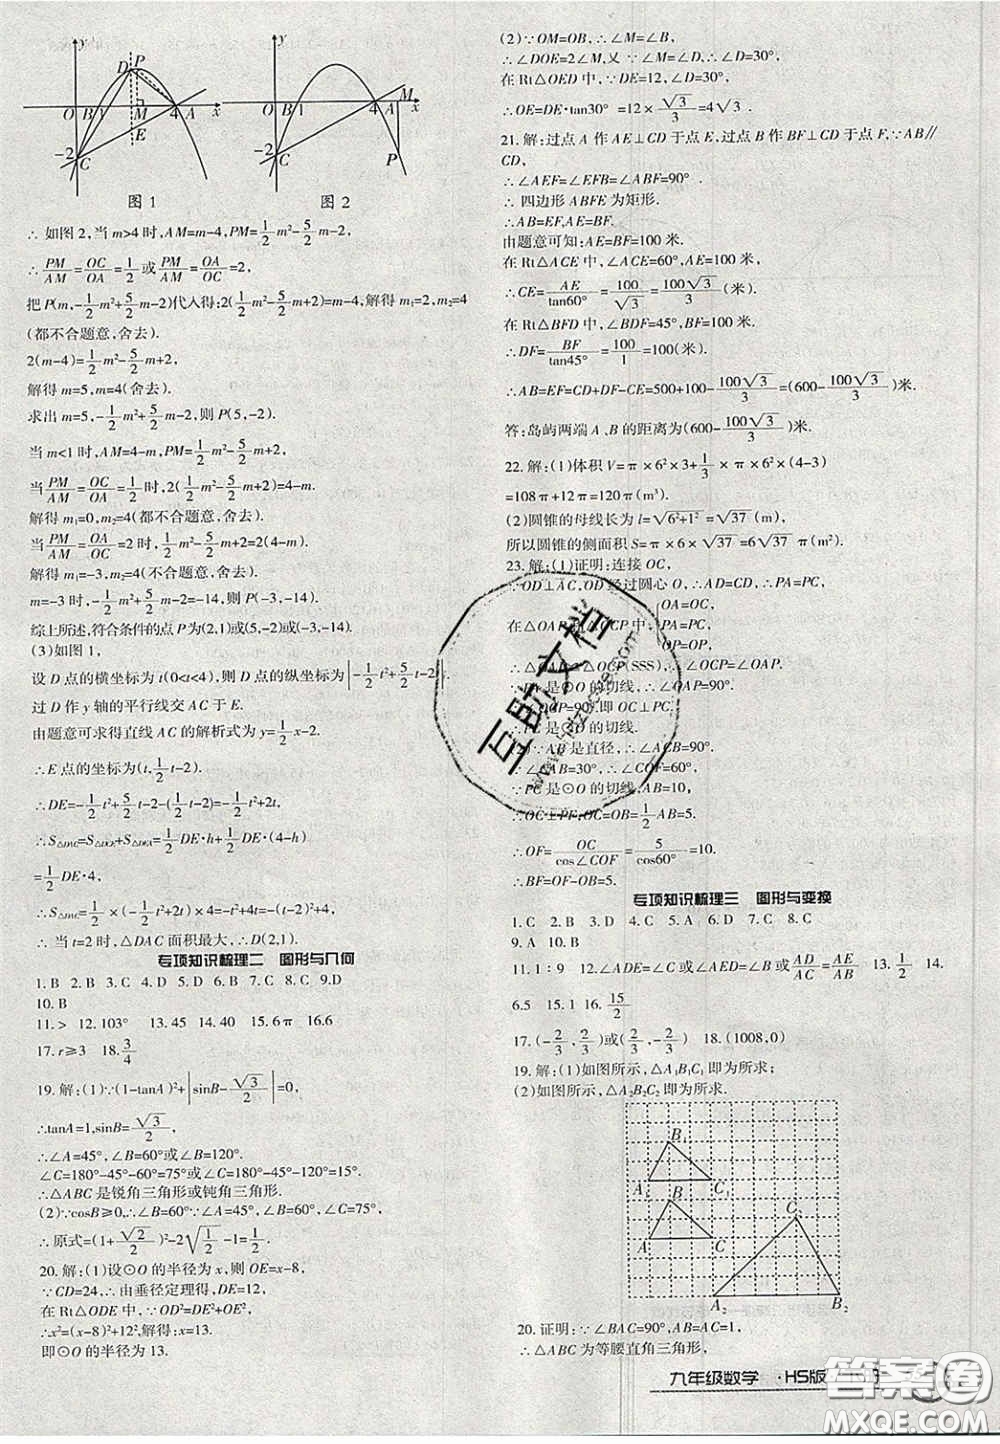 y
D
P
O
B
1
M
4
A
x
E
-2
C
图 1
y
O
B
1
4
A
M
x
-2
C
P
图 2
∴ 如图 2,当 m>4 时,AM=m-4,PM=1/2 m²-5/2 m-2,
∴ PM/AM=OC/OA=1/2 或 PM/AM=OA/OC=2,
把 P(m,-1/2 m²+5/2 m-2)代入得:2(1/2 m²-5/2 m+2)=m-4,解得 m₁=2,m₂=4
(都不合题意,舍去).
2(m-4)=1/2 m²-5/2 m+2,
解得 m=5,m=4(舍去).
求出 m=5,-1/2 m²+5/2 m-2,则 P(5,-2).
当 m<1 时,AM=4-m,PM=1/2 m²-5/2 m+2.
当 PM/AM=OC/OA=1/2 时,2(1/2 m²-5/2 m+2)=4-m.
解得 m₁=0,m₂=4(都不合题意,舍去).
当 PM/AM=OA/OC=2 时,1/2 m²-5/2 m+2=2(4-m).
解得 m₁=-3,m₂=4(不合题意,舍去).
m=-3 时,-1/2 m²+5/2 m-2=-14,则 P(-3,-14).
综上所述,符合条件的点 P 为(2,1)或(5,-2)或(-3,-14).
(3)如图 1,
设 D 点的横坐标为 t(0<t<4),则 D 点的纵坐标为|-1/2 t²+5/2 t-2|.
过 D 作 y 轴的平行线交 AC 于 E.
由题意可求得直线 AC 的解析式为 y=1/2 x-2.
∴E 点的坐标为(t,1/2 t-2).
∴DE=-1/2 t²+5/2 t-2-(1/2 t-2)=-1/2 t²+2t,
∴S△DAC=S△DCE+S△DEA=1/2 DE·h+1/2 DE·(4-h)
=1/2 DE·4,
∴S△DAC=1/2 ×(-1/2 t²+2t)×4=-t²+4t=-(t-2)²+4,
∴ 当 t=2 时,△DAC 面积最大,∴D(2,1).
专项知识梳理二 图形与几何
1. B 2. B 3. C 4. D 5. D 6. B 7. D 8. C 9. D
10. B
11. > 12. 103° 13. 45 14. 40 15. 6π 16. 6
17. r≥3 18. 3/4
19. 解:(1)∵(1-tanA)²+|sinB-√3/2|=0,
∴tanA=1,sinB=√3/2.
∴∠A=45°,∠B=60°或∠B=120°.
∠C=180°-45°-60°=75°或∠C=180-45°-120=15°.
∴△ABC 是锐角三角形或钝角三角形.
(2)∵cosB≥0,∴∠B=60°∵∠A=45°,∠B=60°,∠C=75°,
∴原式=(1+√2/2)²-2√(1/2)-1=1/2.
20. 解:(1)设⊙O 的半径为 x,则 OE=x-8,
∵CD=24,∴由垂径定理得,DE=12,
在 Rt△ODE 中,∵OD²=DE²+OE²,
∴x²=(x-8)²+12²,解得:x=13.
即⊙O 的半径为 13.
(2)∵OM=OB,∴∠M=∠B,
∴∠DOE=2∠M. 又∵∠M=∠D,∴∠D=30°,
在 Rt△OED 中,∵DE=12,∠D=30°,
∴OE=DE·tan30° =12×√3/3=4√3.
21. 解:过点 A 作 AE⊥CD 于点 E,过点 B 作 BF⊥CD 于点 F,∵AB∥
CD,
∴∠AEF=∠EFB=∠ABF=90°.
∴ 四边形 ABFE 为矩形.
∴AB=EF,AE=BF.
由题意可知:AE=BF=100 米.
在 Rt△ACE 中,∠CEA=60°,AE=100 米.
∴CE=AE/tan60°=100/√3=100√3/3(米).
在 Rt△BFD 中,∠BDF=45°,BF=100 米.
∴DF=BF/tan45°=100/1=100(米).
∴AB=EF=CD+DF-CE=500+100-100√3/3=(600-100√3/3)米.
答:岛屿两端 A、B 的距离为(600-100√3/3)米.
22. 解:(1)体积 V=π×6²×3+1/3×π×6²×(4-3)
=108π+12π=120π(m³).
(2)圆锥的母线长为 l=√(6²+1²)=√37(m),
所以圆锥的侧面积 S=π×6×√37=6√37π(m²).
23. 解:(1)证明:连接 OC,
∵OD⊥AC,OD 经过圆心 O,∴AD=CD,∴PA=PC.
在△OAP 和△OCP 中,{OA=OC, PA=PC, OP=OP
∴△OAP≌△OCP(SSS),∴∠OCP=∠OAP.
∵PA 是⊙O 的切线,∴∠OAP=90°.
∴∠OCP=90°,即 OC⊥PC.
∴PC 是⊙O 的切线.
(2)∵AB 是直径,∴∠ACB=90°.
∵∠CAB=30°,∴∠COF=60°.
∵PC 是⊙O 的切线,AB=10,
∴OC⊥PF,OC=OB=1/2 AB=5.
∴OF=OC/cos∠COF=5/cos60°=10.
∴BF=OF-OB=5.
专项知识梳理三 图形与变换
1. C 2. B 3. D 4. C 5. A 6. D 7. C 8. C
9. A 10. B
11. 1:9 12. ∠ADE=∠C 或∠AED=∠B 或 AD/AC=AE/AB 13. 1/2 14.
6.5 15. 1 16. 15/2
17. (-2/3,2/3)或(2/3,-2/3) 18. (1008,0)
19. 解:(1)如图所示,△A₁B₁C₁ 即为所求;
(2)如图所示,△A₂B₂C₂ 即为所求.
B₁
A₁
C₁
B
A
C
C₂
A₂
B₂
20. 证明:∵∠BAC=90°,AB=AC=1,
∴△ABC 为等腰直角三角形,
九年级数学 ·HS版
互助文档
答案圈
MXQE.COM